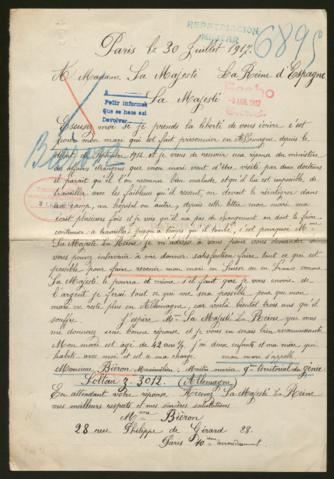 REPATRIACION
MILITAR
6895
Paris le 30 Juillet 1917.
A Madame Sa Majesté La Reine d'Espagne
Sa Majesté
Pedir informes
que se hace así
Devolver
Excusez moi si je prends la liberté de vous écrire c'est
pour mon mari qui est fait prisonnier en Allemagne depuis le
Septembre 1914 et je viens de recevoir une réponse du ministère
des affaires étrangères que mon mari vient d'être visité par deux docteurs
il parait qu'il l'on reconnu bien malade, et qu'il lui est impossible de
travailler avec les faiblesses qu'il ressent, on devait le réintégrer dans
camp, un hopital ou autre, depuis cette lettre mon mari m'a
écrit plusieurs fois et je vois qu'il n'y a pas de changement on doit le faire
continuer a travailler jusqu'a temps qu'il tombe, c'est pourquoi Mme
Sa Majesté La Reine je m'adresse a vous pour vous demander si
vous pouvez intervenir a me donner satisfaction faire tout ce qui est
possible pour faire revenir mon mari en Suisse ou en France comme
Sa Majesté le pourra et même s'il fait que je vous envoie de
l'argent je ferai tout ce qui me sera possible pour que mon
mari ne reste plus en Allemagne, car voila bientot trois ans qu'il
souffre. J'espère Mme Sa Majesté La Reine que vous
me donnerez une bonne réponse et je vous en serai bien reconnaissante
Mon mari est agé de 42 ans ½, j'ai deux enfants et ma mère qui
habite avec moi et a ma charge. mon mari s'appelle
Monsieur Biéron Maximilien, 9e territorial du génie
Soltau z. 3012 (Allemagne)
En attendant votre réponse Recevez Sa Majesté La Reine
mes meilleurs respects et mes sincères salutations
Mme Biéron
28 rue Philippe de Girard 28.
Paris 10ème arrondissement